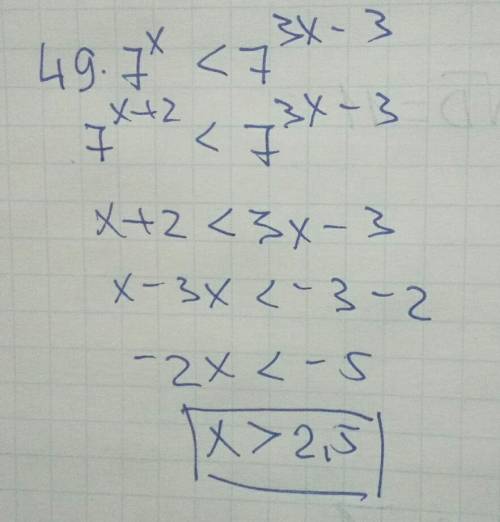 49·7^x < 7^{3x-3}
7^{x+2} < 7^{3x-3}
x+2 < 3x-3
x-3x < -3-2
-2x < -5
x > 2,5